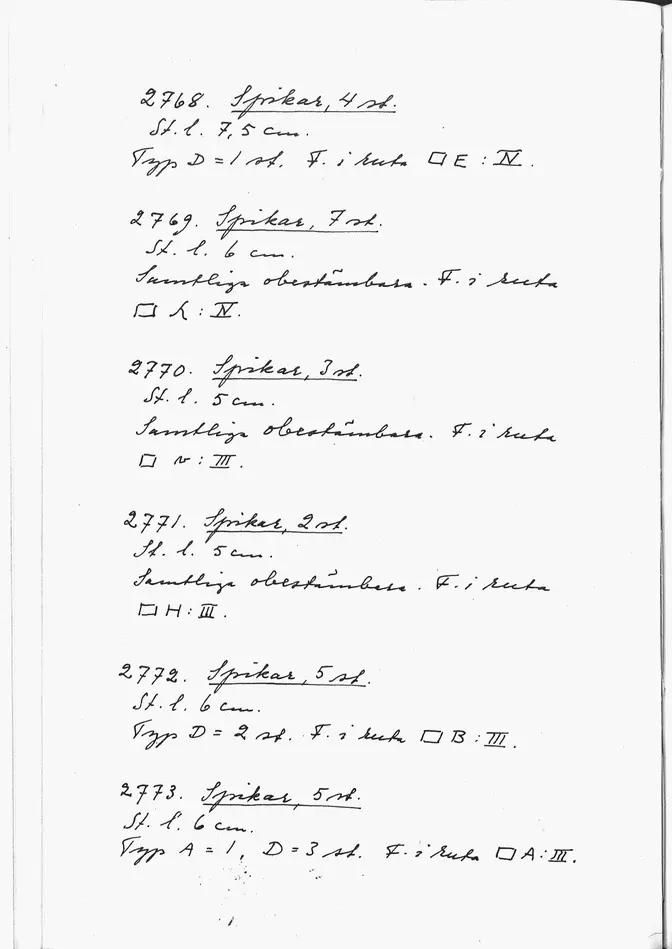 2768. Spikar, 4 st.
St. l. 7,5 cm.
Typ D = 1 st. F. i ruta □ E : IV.
2769. Spikar, 7 st.
St. l. 6 cm.
Samtliga obestämbara. F. i ruta
□ h : IV.
2770. Spikar, 3 st.
St. l. 5 cm.
Samtliga obestämbara. F. i ruta
□ v : III.
2771. Spikar, 2 st.
St. l. 5 cm.
Samtliga obestämbara. F. i ruta
□ H : III.
2772. Spikar, 5 st.
St. l. 6 cm.
Typ D = 2 st. F. i ruta □ B : III.
2773. Spikar, 5 st.
St. l. 6 cm.
Typ A = 1, D = 3 st. F. i ruta □ A : III.